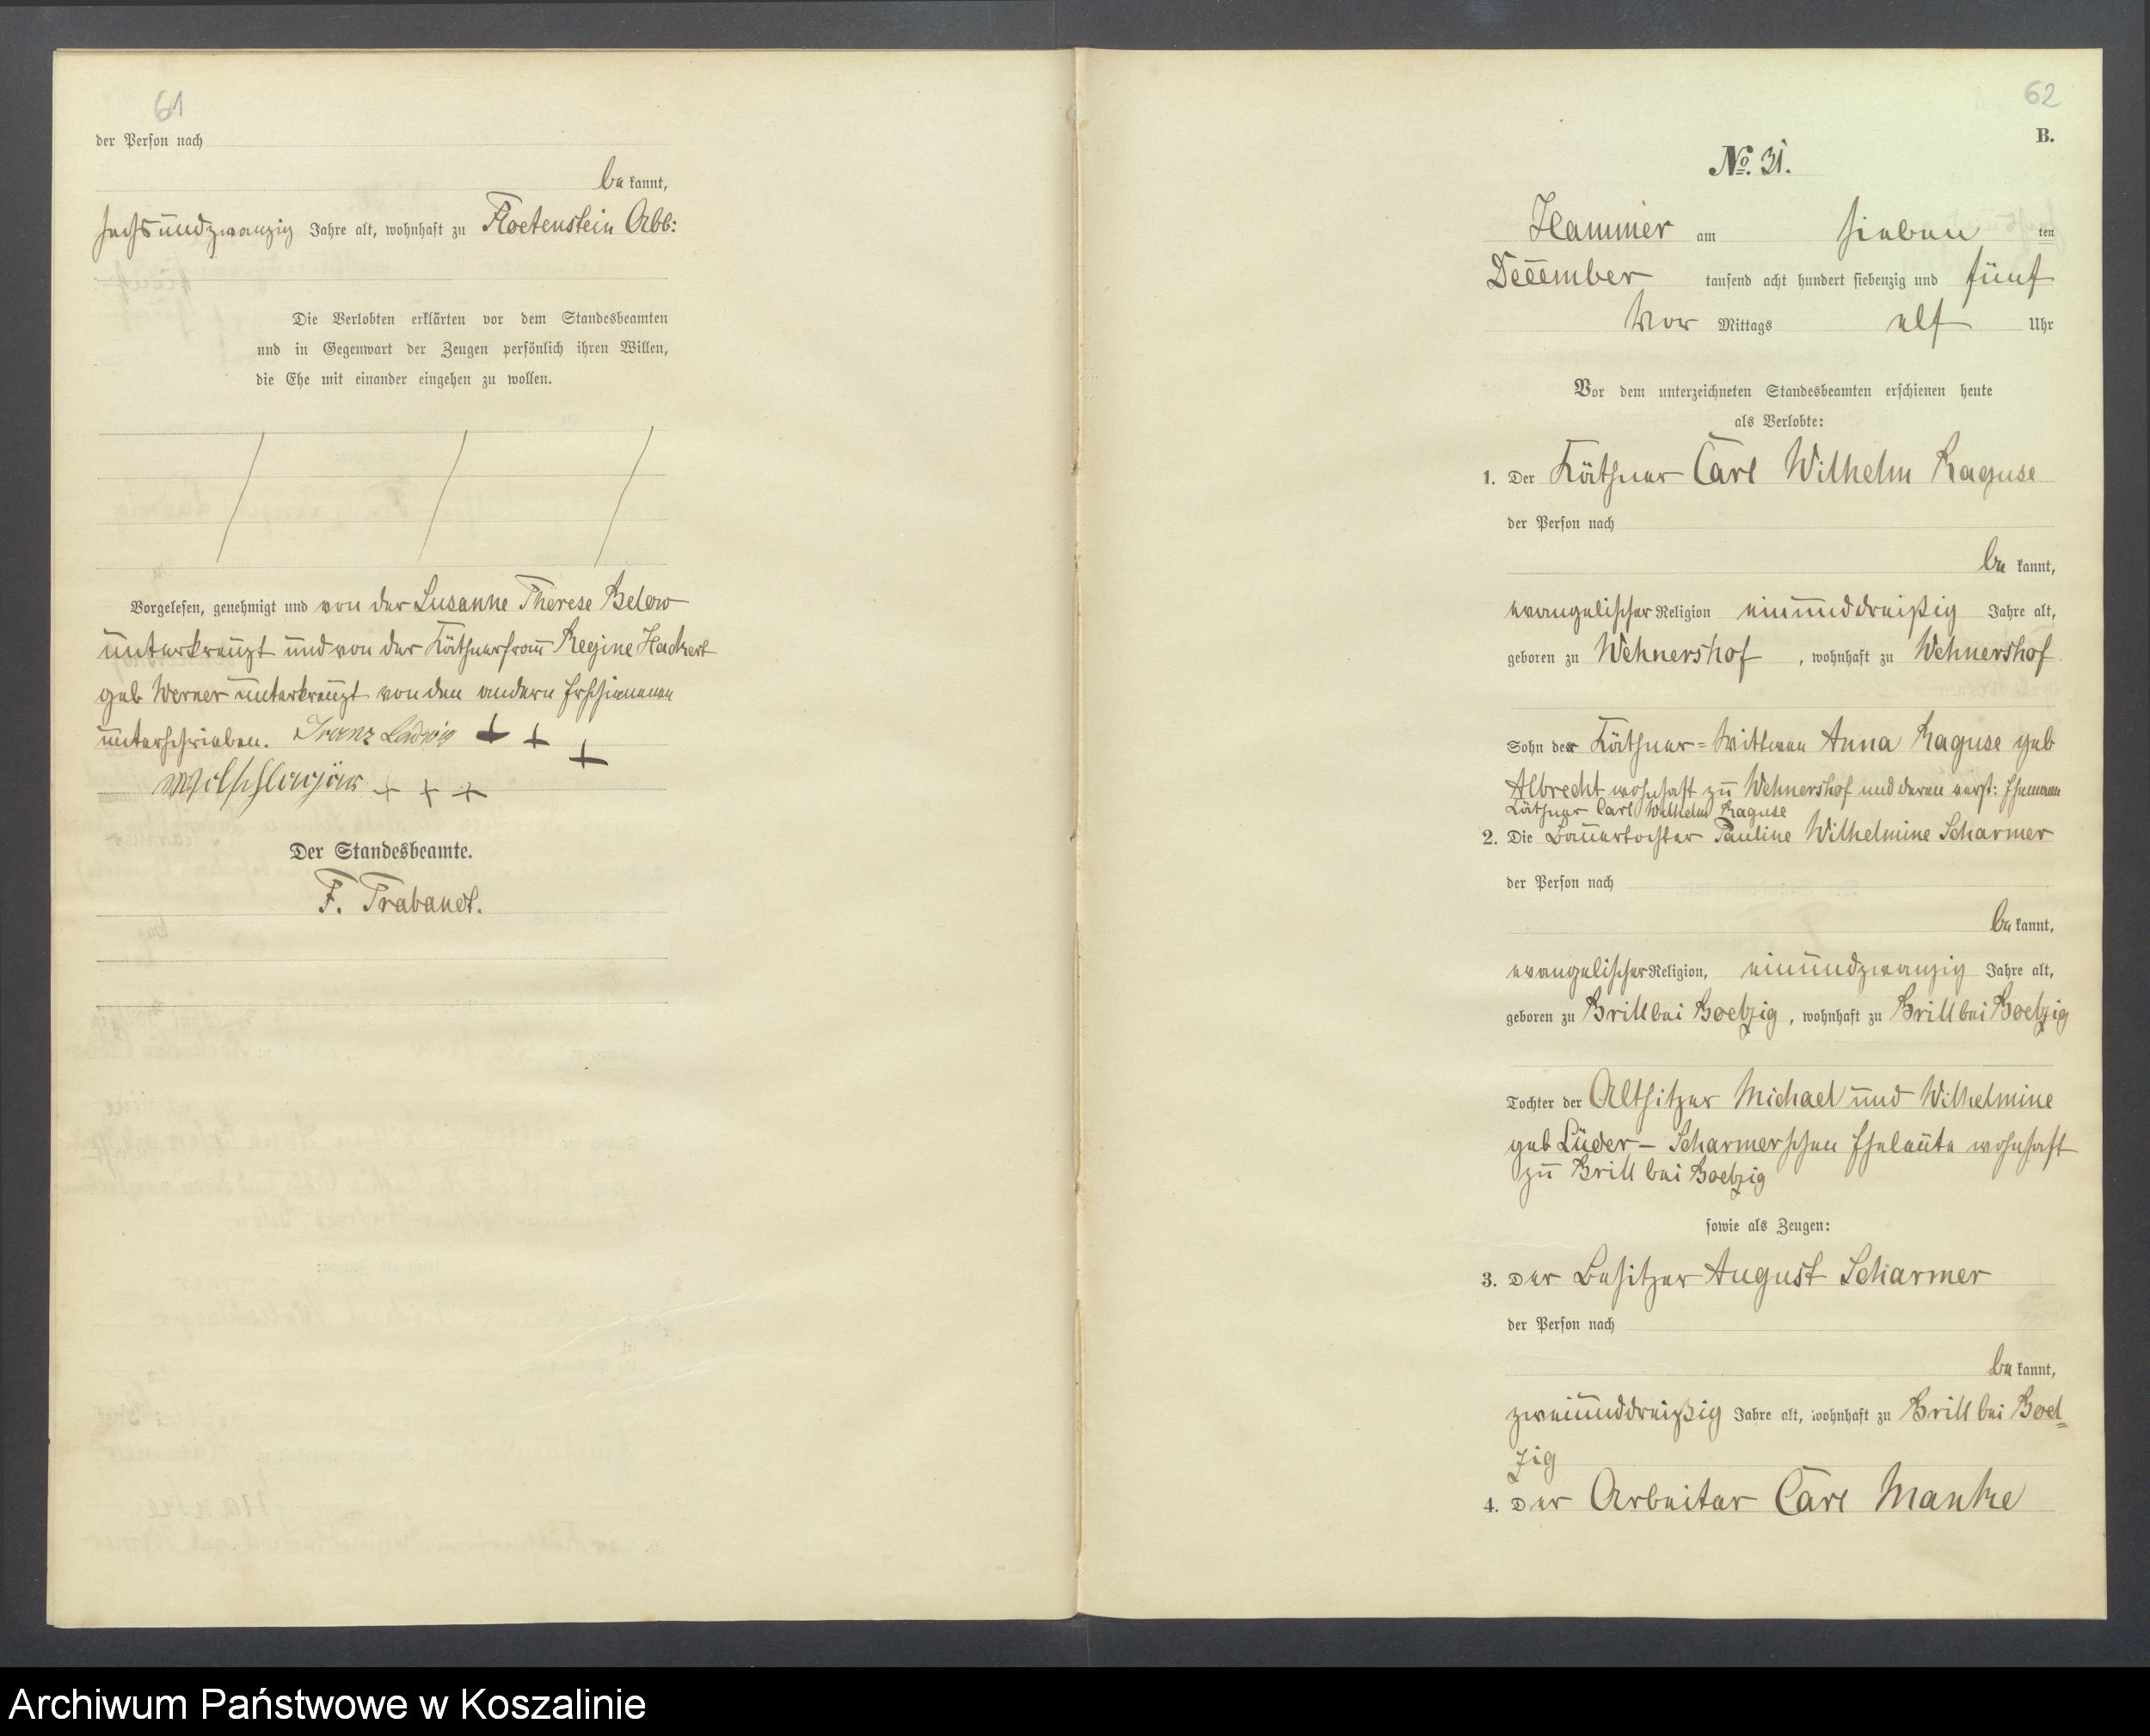 61
der Person nach
bekannt,
sechsundzwanzig Jahre alt, wohnhaft zu Floetenstein Abb:
Die Verlobten erklärten vor dem Standesbeamten
und in Gegenwart der Zeugen persönlich ihren Willen,
die Ehe mit einander eingehen zu wollen.
Vorgelesen, genehmigt und von der Susanne Therese Below
unterkreuzt und von der Käthnerfrau Regine Hackert
geb Werner unterkreuzt von den andern Erschienenen
unterschrieben. Franz Ladwig + + +
+ + +
Der Standesbeamte.
F. Trabandt.
62
B.
No. 31.
Hammer am sieben ten
December tausend acht hundert siebenzig und fünf
Vor Mittags elf Uhr
Vor dem unterzeichneten Standesbeamten erschienen heute
als Verlobte:
1. Der Käthner Carl Wilhelm Raguse
der Person nach
bekannt,
evangelischer Religion einunddreißig Jahre alt,
geboren zu Wehnershof, wohnhaft zu Wehnershof
Sohn der Käthner=Wittwe Anna Raguse geb
Albrecht wohnhaft zu Wehnershof und deren verst: Ehemann
Käthner Carl Wilhelm Raguse
2. Die Bauertochter Pauline Wilhelmine Scharmer
der Person nach
bekannt,
evangelischer Religion, einundzwanzig Jahre alt,
geboren zu Brill bei Boelzig, wohnhaft zu Brill bei Boelzig
Tochter der Altsitzer Michael und Wilhelmine
geb Lüder - Scharmerschen Eheleute wohnhaft
zu Brill bei Boelzig
sowie als Zeugen:
3. Der Besitzer August Scharmer
der Person nach
bekannt,
zweiunddreißig Jahre alt, wohnhaft zu Brill bei Boel=
zig
4. Der Arbeiter Carl Manke
Archiwum Państwowe w Koszalinie